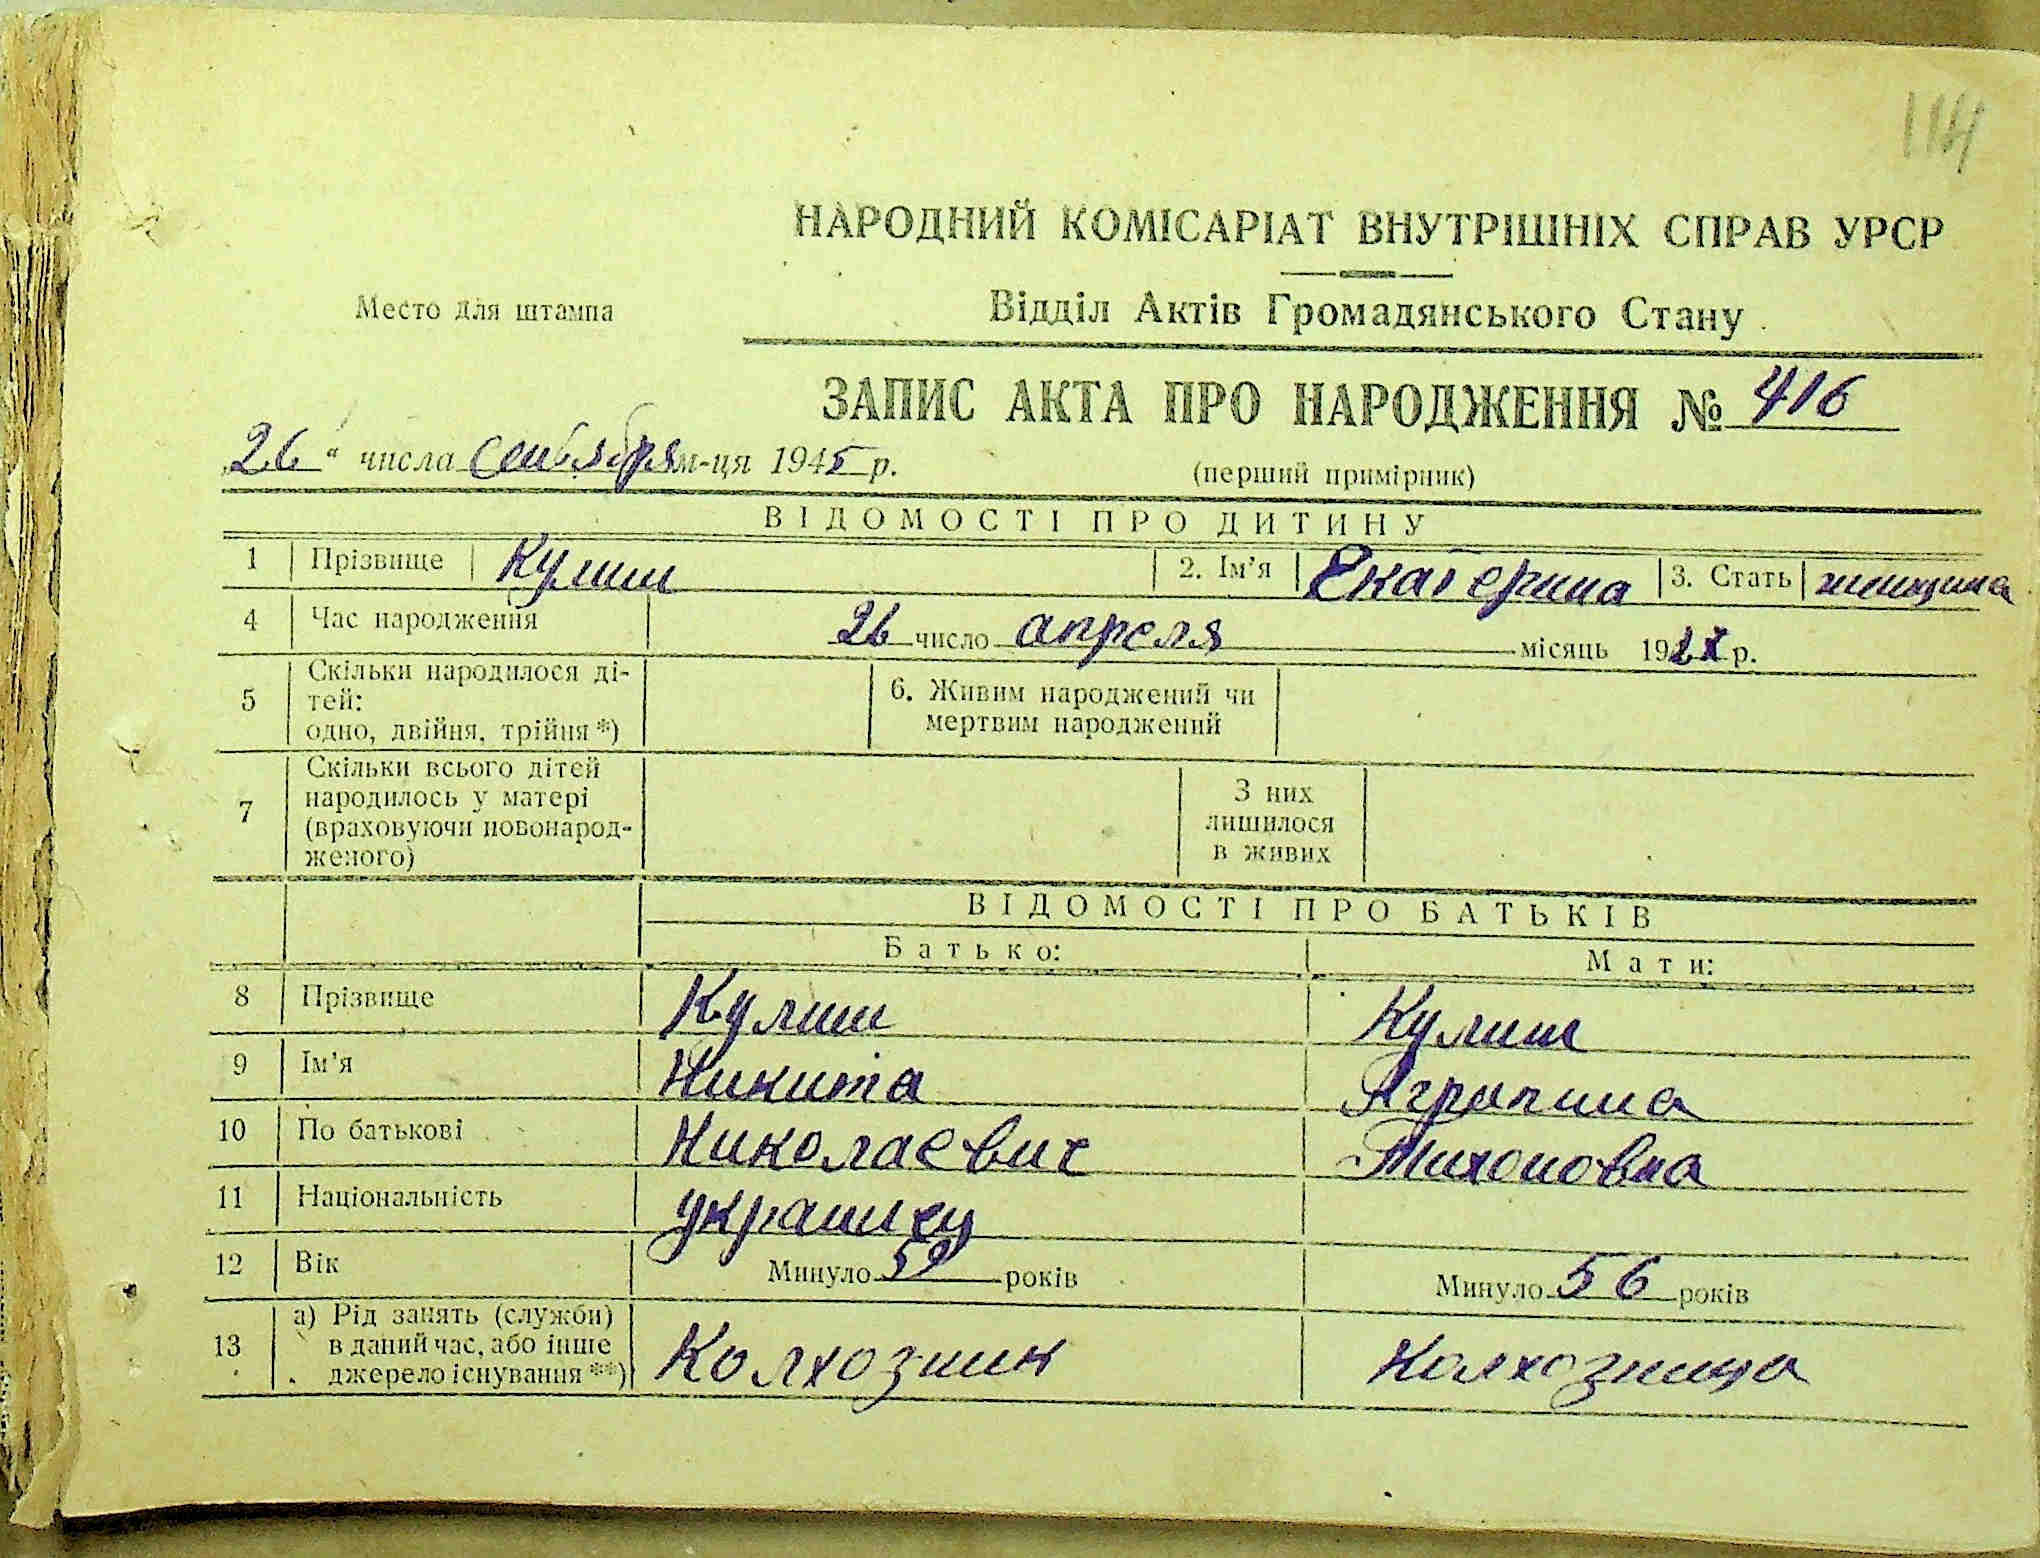 114
НАРОДНИЙ КОМІСАРІАТ ВНУТРІШНІХ СПРАВ УРСР
Место для штампа
Відділ Актів Громадянського Стану
ЗАПИС АКТА ПРО НАРОДЖЕННЯ № 416
„26" числа сентября м-ця 1945 р.
(перший примірник)
ВІДОМОСТІ ПРО ДИТИНУ
1 Прізвище Кулиш 2. Ім'я Екатерина 3. Стать женщина
4 Час народження 26 число апреля місяць 192 р.
5 Скільки народилося ді-
тей:
одно, двійня, трійня *)
6. Живим народжений чи
мертвим народжений
7 Скільки всього дітей
народилось у матері
(враховуючи новонарод-
женого)
З них
лишилося
в живих
ВІДОМОСТІ ПРО БАТЬКІВ
Батько: Мати:
8 Прізвище Кулиш Кулиш
9 Ім'я Никита Агропина
10 По батькові Николаевич Тихоновна
11 Національність украинец
12 Вік Минуло 59 років Минуло 56 років
13 а) Рід занять (служби)
в даний час, або інше
джерело існування **)
Колхозник Колхозница